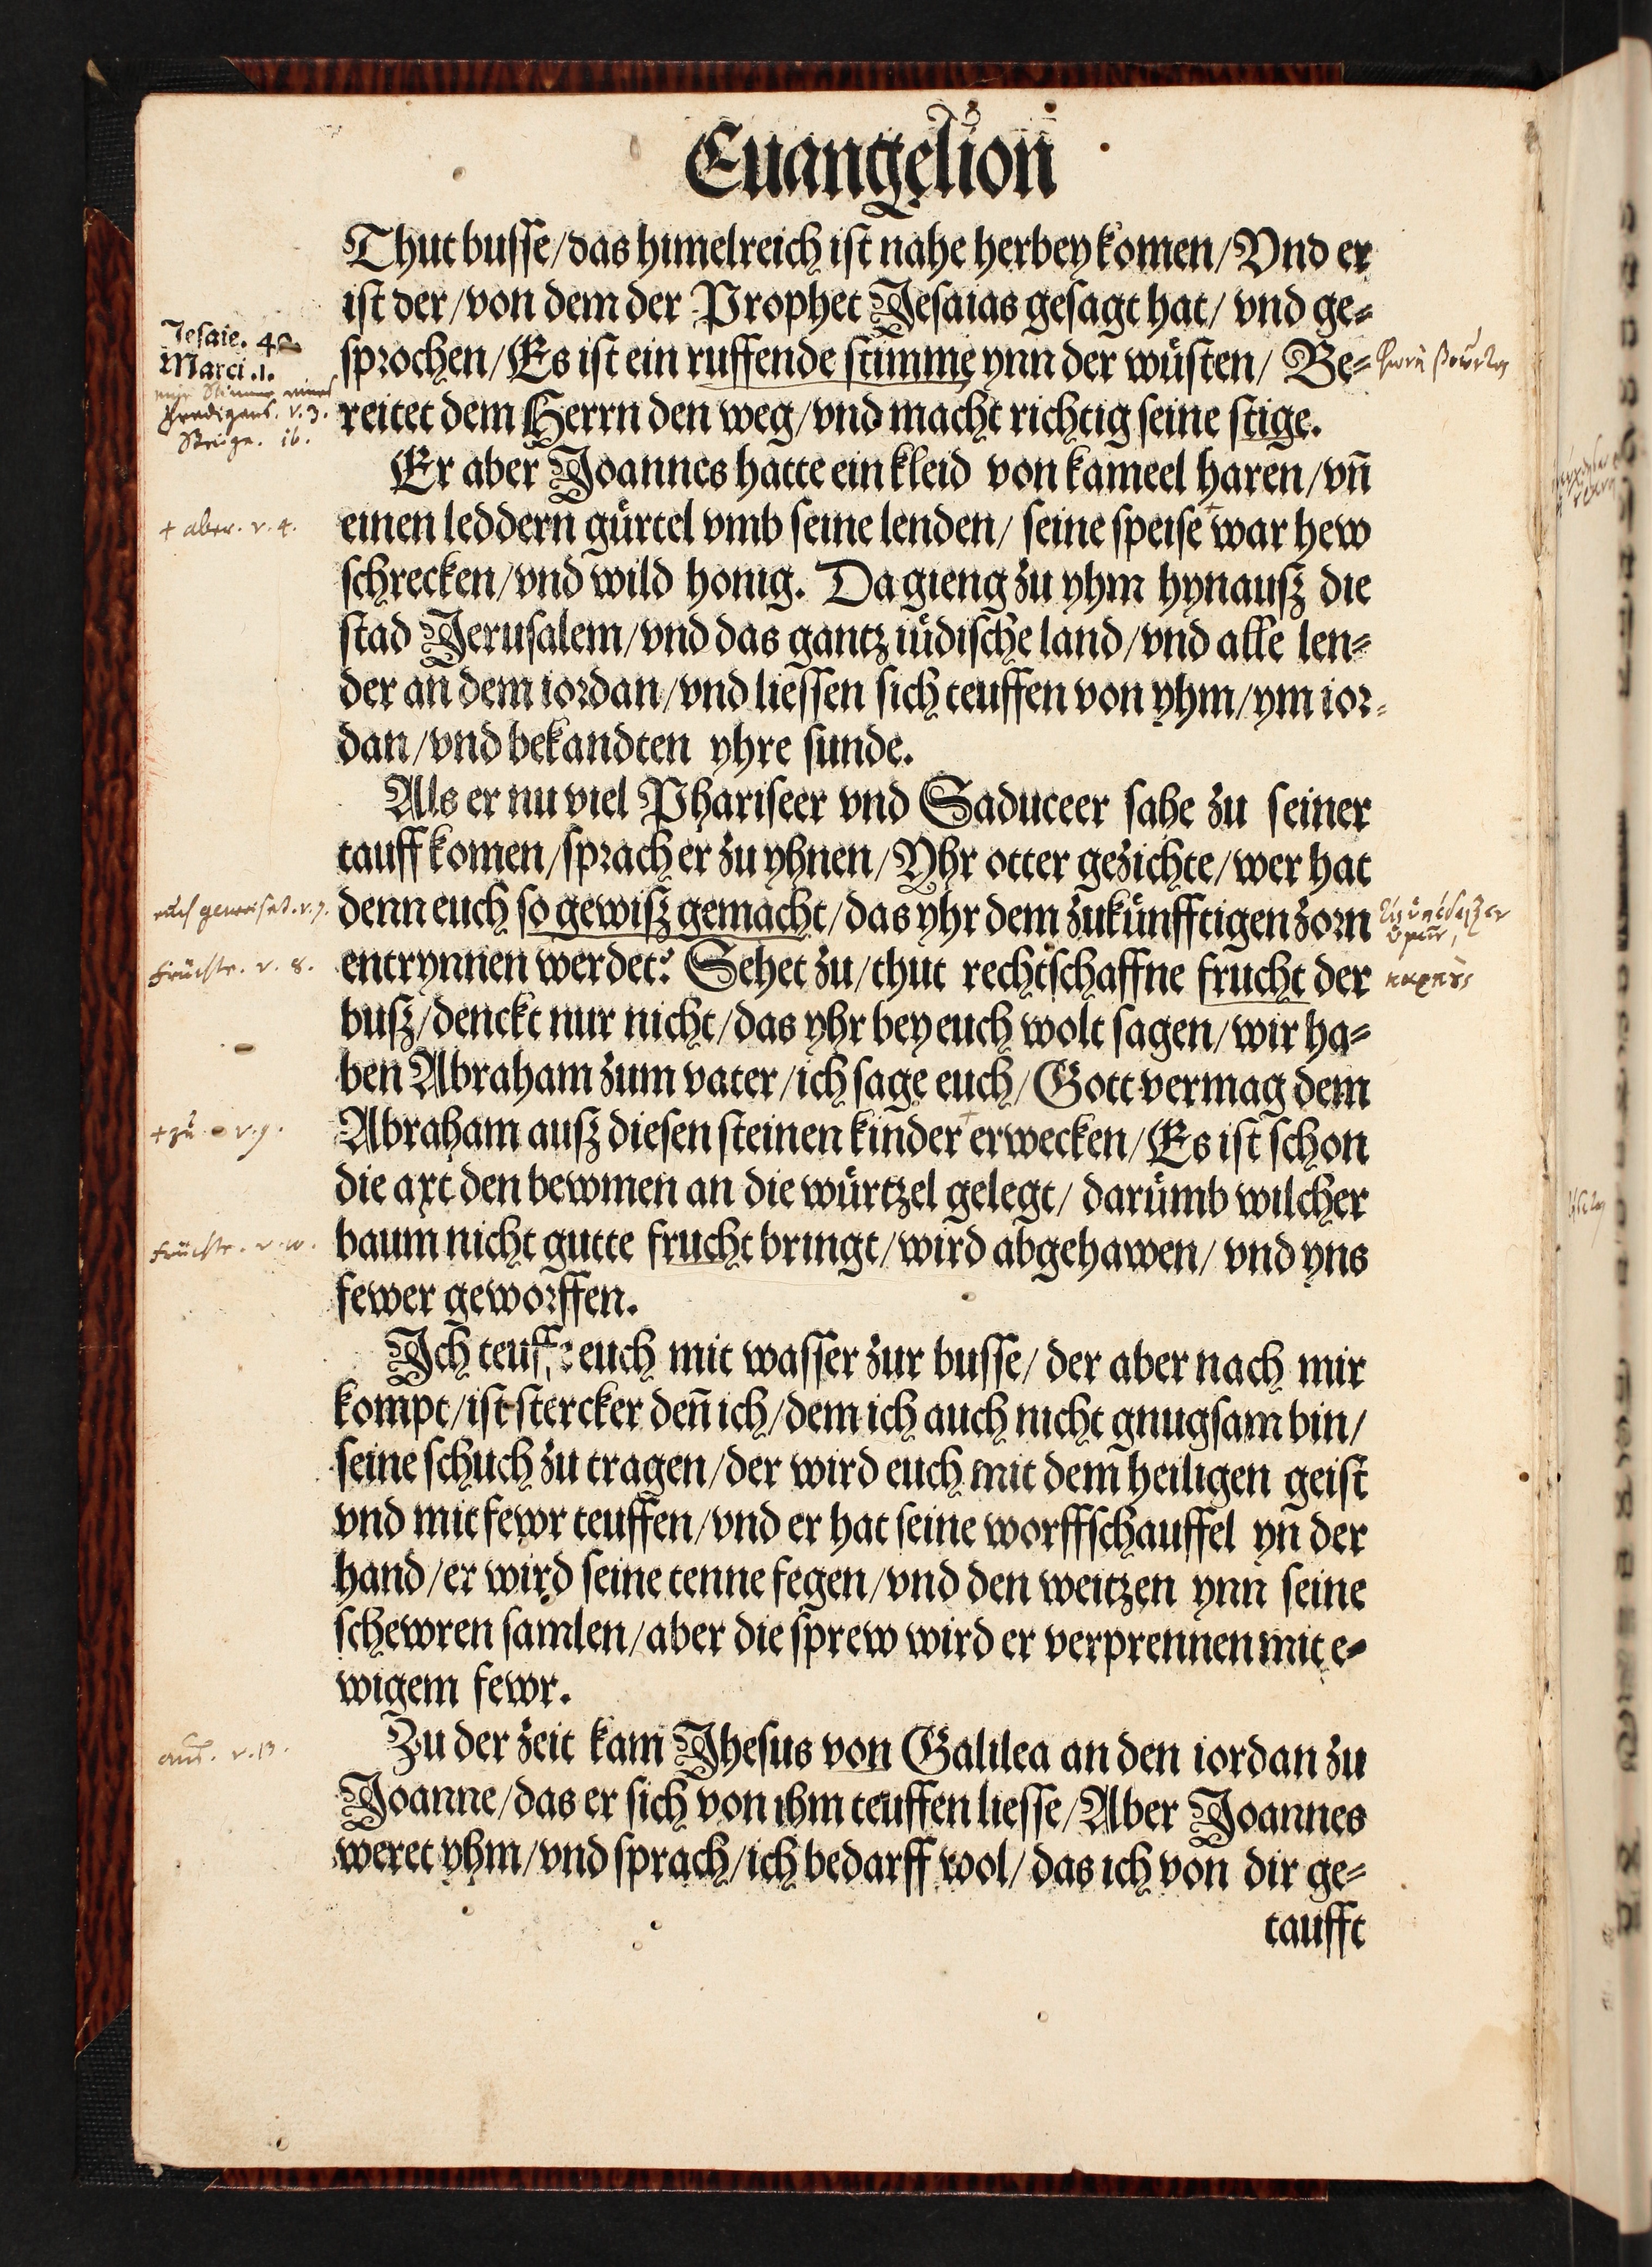 Euangelion
Thut busse/das himelreich ist nahe herbey komen/Vnd er
ist der/von dem der Prophet Jesaias gesagt hat/ vnd ge-
sprochen/Es ist ein ruffende stimme ynn der wüsten/ Be-
reitet dem Herrn den weg/vnd macht richtig seine stige.
Jesaie. 40
Marci .1.
Predigers. v. 3.
Steige. ib.
Er aber Joannes hatte ein kleid von kameel haren/vñ
einen leddern gürtel vmb seine lenden/ seine speise + war hew
schrecken/vnd wild honig. Da gieng zu yhm hynausz die
stad Jerusalem/vnd das gantz iüdische land/vnd alle len-
der an dem iordan/vnd liessen sich teuffen von yhm/ym ior-
dan/vnd bekandten yhre sunde.
+ aber. v. 4.
Als er nu viel Phariseer vnd Saduceer sahe zu seiner
tauff komen/sprach er zu yhnen/Yhr otter gezichte/wer hat
denn euch so gewisz gemacht/das yhr dem zukünfftigen zorn
entrynnen werdet? Sehet zu/thut rechtschaffne frucht der
busz/denckt nur nicht/das yhr bey euch wolt sagen/wir ha-
ben Abraham zum vater/ich sage euch/Gott vermag dem
Abraham ausz diesen steinen kinder + erwecken/Es ist schon
die axt den bewmen an die würtzel gelegt/ darümb wilcher
baum nicht gutte frucht bringt/wird abgehawen/ vnd yns
fewer geworffen.
euch geweiset. v. 7.
Früchte. v. 8.
καρπὺς
+ zu v. 9.
Früchte. v. 10.
Ich teuffe euch mit wasser zur busse/ der aber nach mir
kompt/ist stercker deñ ich/dem ich auch nicht gnugsam bin/
seine schuch zu tragen/der wird euch mit dem heiligen geist
vnd mit fewr teuffen/vnd er hat seine worffschauffel yñ der
hand/er wird seine tenne fegen/vnd den weitzen ynn seine
schewren samlen/aber die sprew wird er verprennen mit e-
wigem fewr.
Zu der zeit kam Jhesus von Galilea an den iordan zu
Joanne/das er sich von ihm teuffen liesse/Aber Joannes
weret yhm/vnd sprach/ich bedarff wol/das ich von dir ge-
aus. v. 13.
taufft